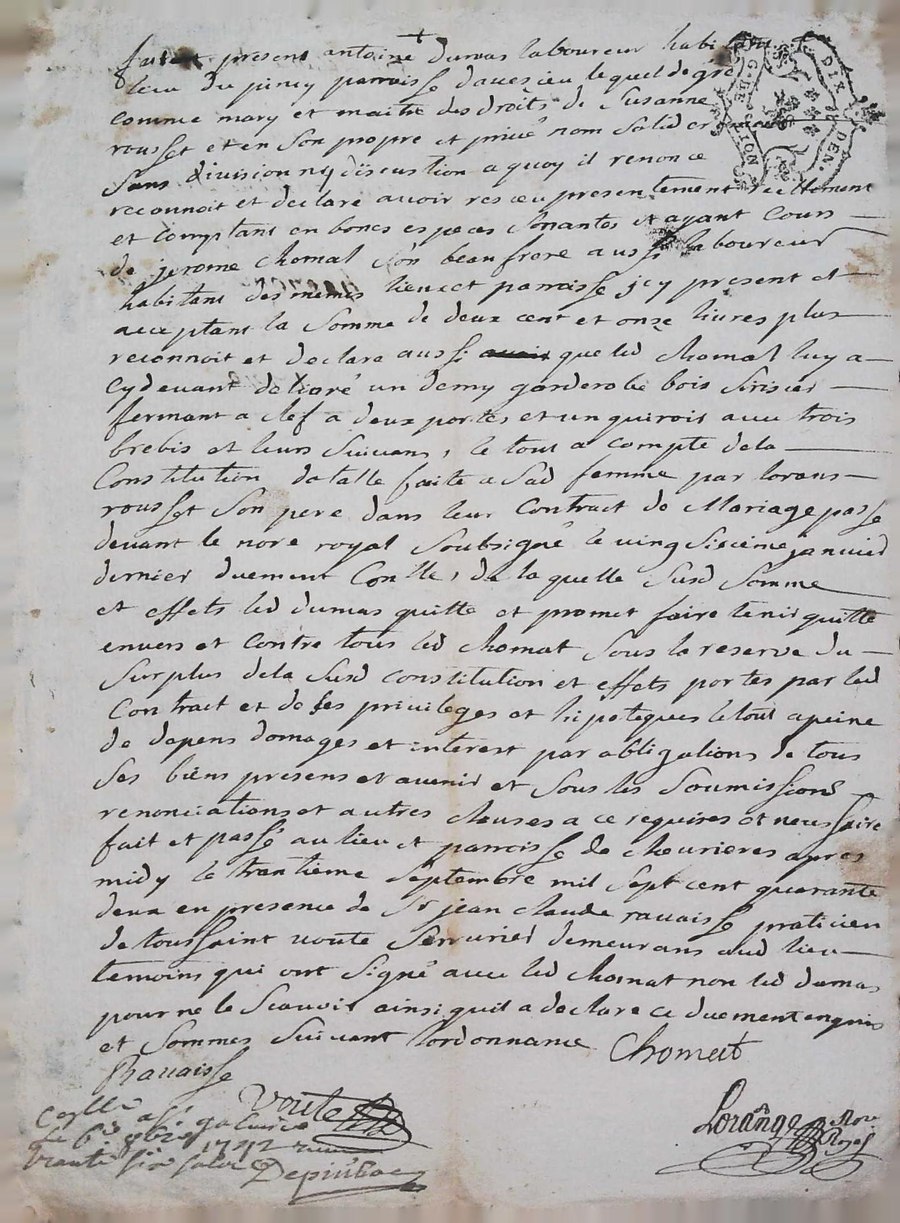 +
fut present antoine dumas laboureur habitant
lieu du piney parroisse daveisieu lequel de gre
comme mary et maitre des droits de Susanne
rousset et en son propre et privé nom solid
sans division ny discustion a quoy il renonce
reconnoit et declare avoir resceu presentement reellement
et comptant en bones especes sonantes et ayant cours
de jerome chomat son beaufrere aussi laboureur
habitant des memes lieu et parroisse icy present et
acceptant la somme de deux cent et onze livres plus
reconnoit et declare aussi que led chomat luy a
cydevant delivré un demy garderobe bois serisier
fermant a clef a deux portes et un avec trois
brebis et leurs suivans, le tout a compte dela
constitution dotalle faite a sad femme par lorans
rousset son pere dans leur contract de mariage passé
devant le nore royal soubsigné le vingsisieme janvier
dernier duement conlle, de laquelle susd somme
et effets led dumas quitte et promet faire tenir quitte
envers et contre tous led chomat sous la reserve du
surplus dela susd constitution et effets portes par led
contract et de ses privileges et hipoteques le tout a peine
de depens domages et interest par obligations de tous
ses biens presens et avenir et sous les soumissions
renonciations et autres clauses a ce requises et necessaire
fait et passé au lieu et parroisse de chevrieres apres
midy le trantieme septembre mil sept cent quarante
deux en presence de Sr jean claude ravaisse praticien
de toussaint voute serrurier demeurans aud lieu
temoins qui ont signé avec led chomat non led dumas
pour ne le scavoir ainsi quil a declare ce duement enquis
et sommes suivant lordonnance Chomat
Ravaisse
Voute
Lorange Nore Royal
Conllé a St galmier
le 6e 8bre 1742
trante six sols
GE DE LION
DIX DEN.